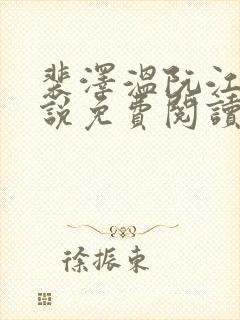 裴澤溫阮江
說免費閱讀
徐振東